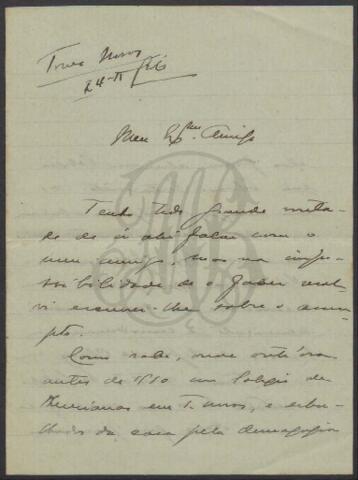 Torres Novas
24-II-926
Meu Ex.mo Amigo
Tenho tido grande vonta-
de de ir ahi falar com o
meu amigo, mas na impos-
sibilidade de o fazer resol-
vi escrever-lhe sobre o assum-
pto.
Como sabe, houve outr'ora
antes de 1910 um Colegio de
em T. Novas, e
da casa pela demagogia